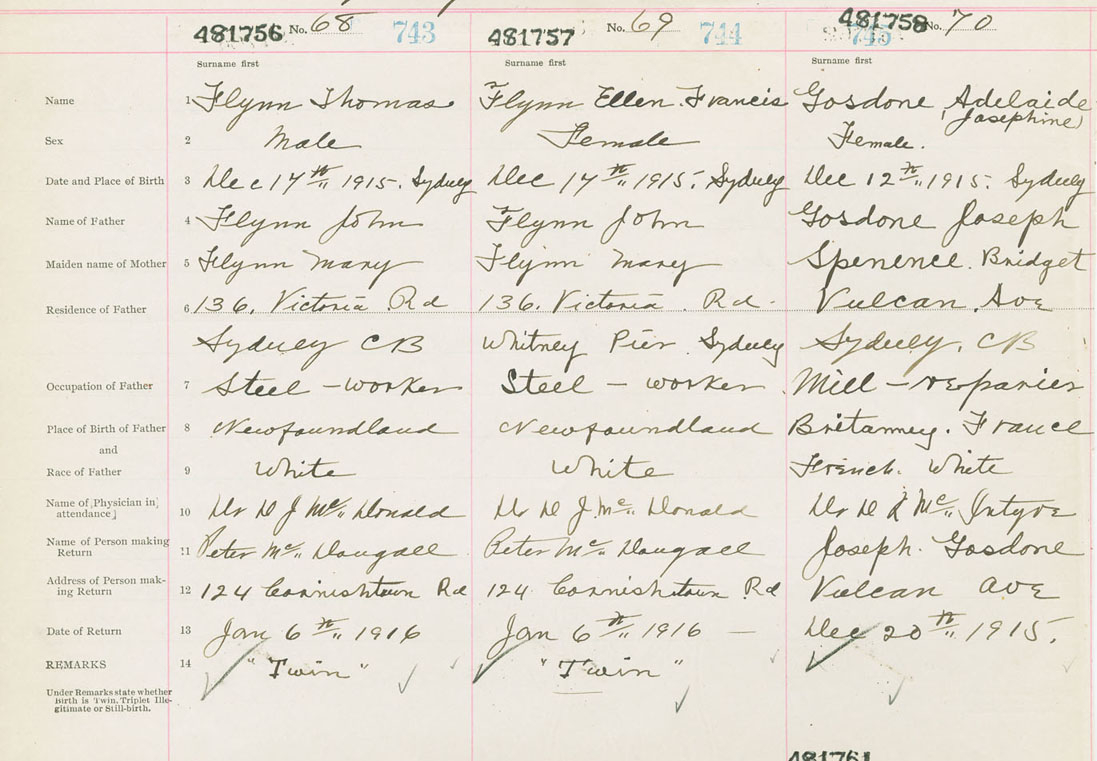 481756 No. 68 743 481757 No. 69 744 481758 No. 70 745
Surname first Surname first Surname first
Name 1 Flynn Thomas Flynn Ellen. Francis Gosdone Adelaide
(Josephine)
Sex 2 Male Female Female.
Date and Place of Birth 3 Dec 17th 1915. Sydney Dec 17th 1915. Sydney Dec 12th 1915. Sydney
Name of Father 4 Flynn John Flynn John Gosdone Joseph
Maiden name of Mother 5 Flynn Mary Flynn Mary Spenence. Bridget
Residence of Father 6 136. Victoria Rd 136. Victoria Rd. Vulcan Ave
Sydney CB Whitney Pier Sydney Sydney. CB
Occupation of Father 7 Steel - worker Steel - worker Mill - reparier
Place of Birth of Father 8 Newfoundland Newfoundland Britanney. France
and
Race of Father 9 White White French. White
Name of [Physician in 10 Dr D J Mc Donald Dr D J Mc Donald Dr D Mc Intyre
attendance]
Name of Person making 11 Peter Mc Dougall Peter Mc Dougall Joseph. Gosdone
Return
Address of Person mak- 12 124 Cornishtown Rd 124 Cornishtown Rd Vulcan Ave
ing Return
Date of Return 13 Jan 6th 1916 Jan 6th 1916 — Dec 20th 1915.
REMARKS 14 "Twin" "Twin"
Under Remarks state whether
Birth is Twin, Triplet Ille-
gitimate or Still-birth.
481761